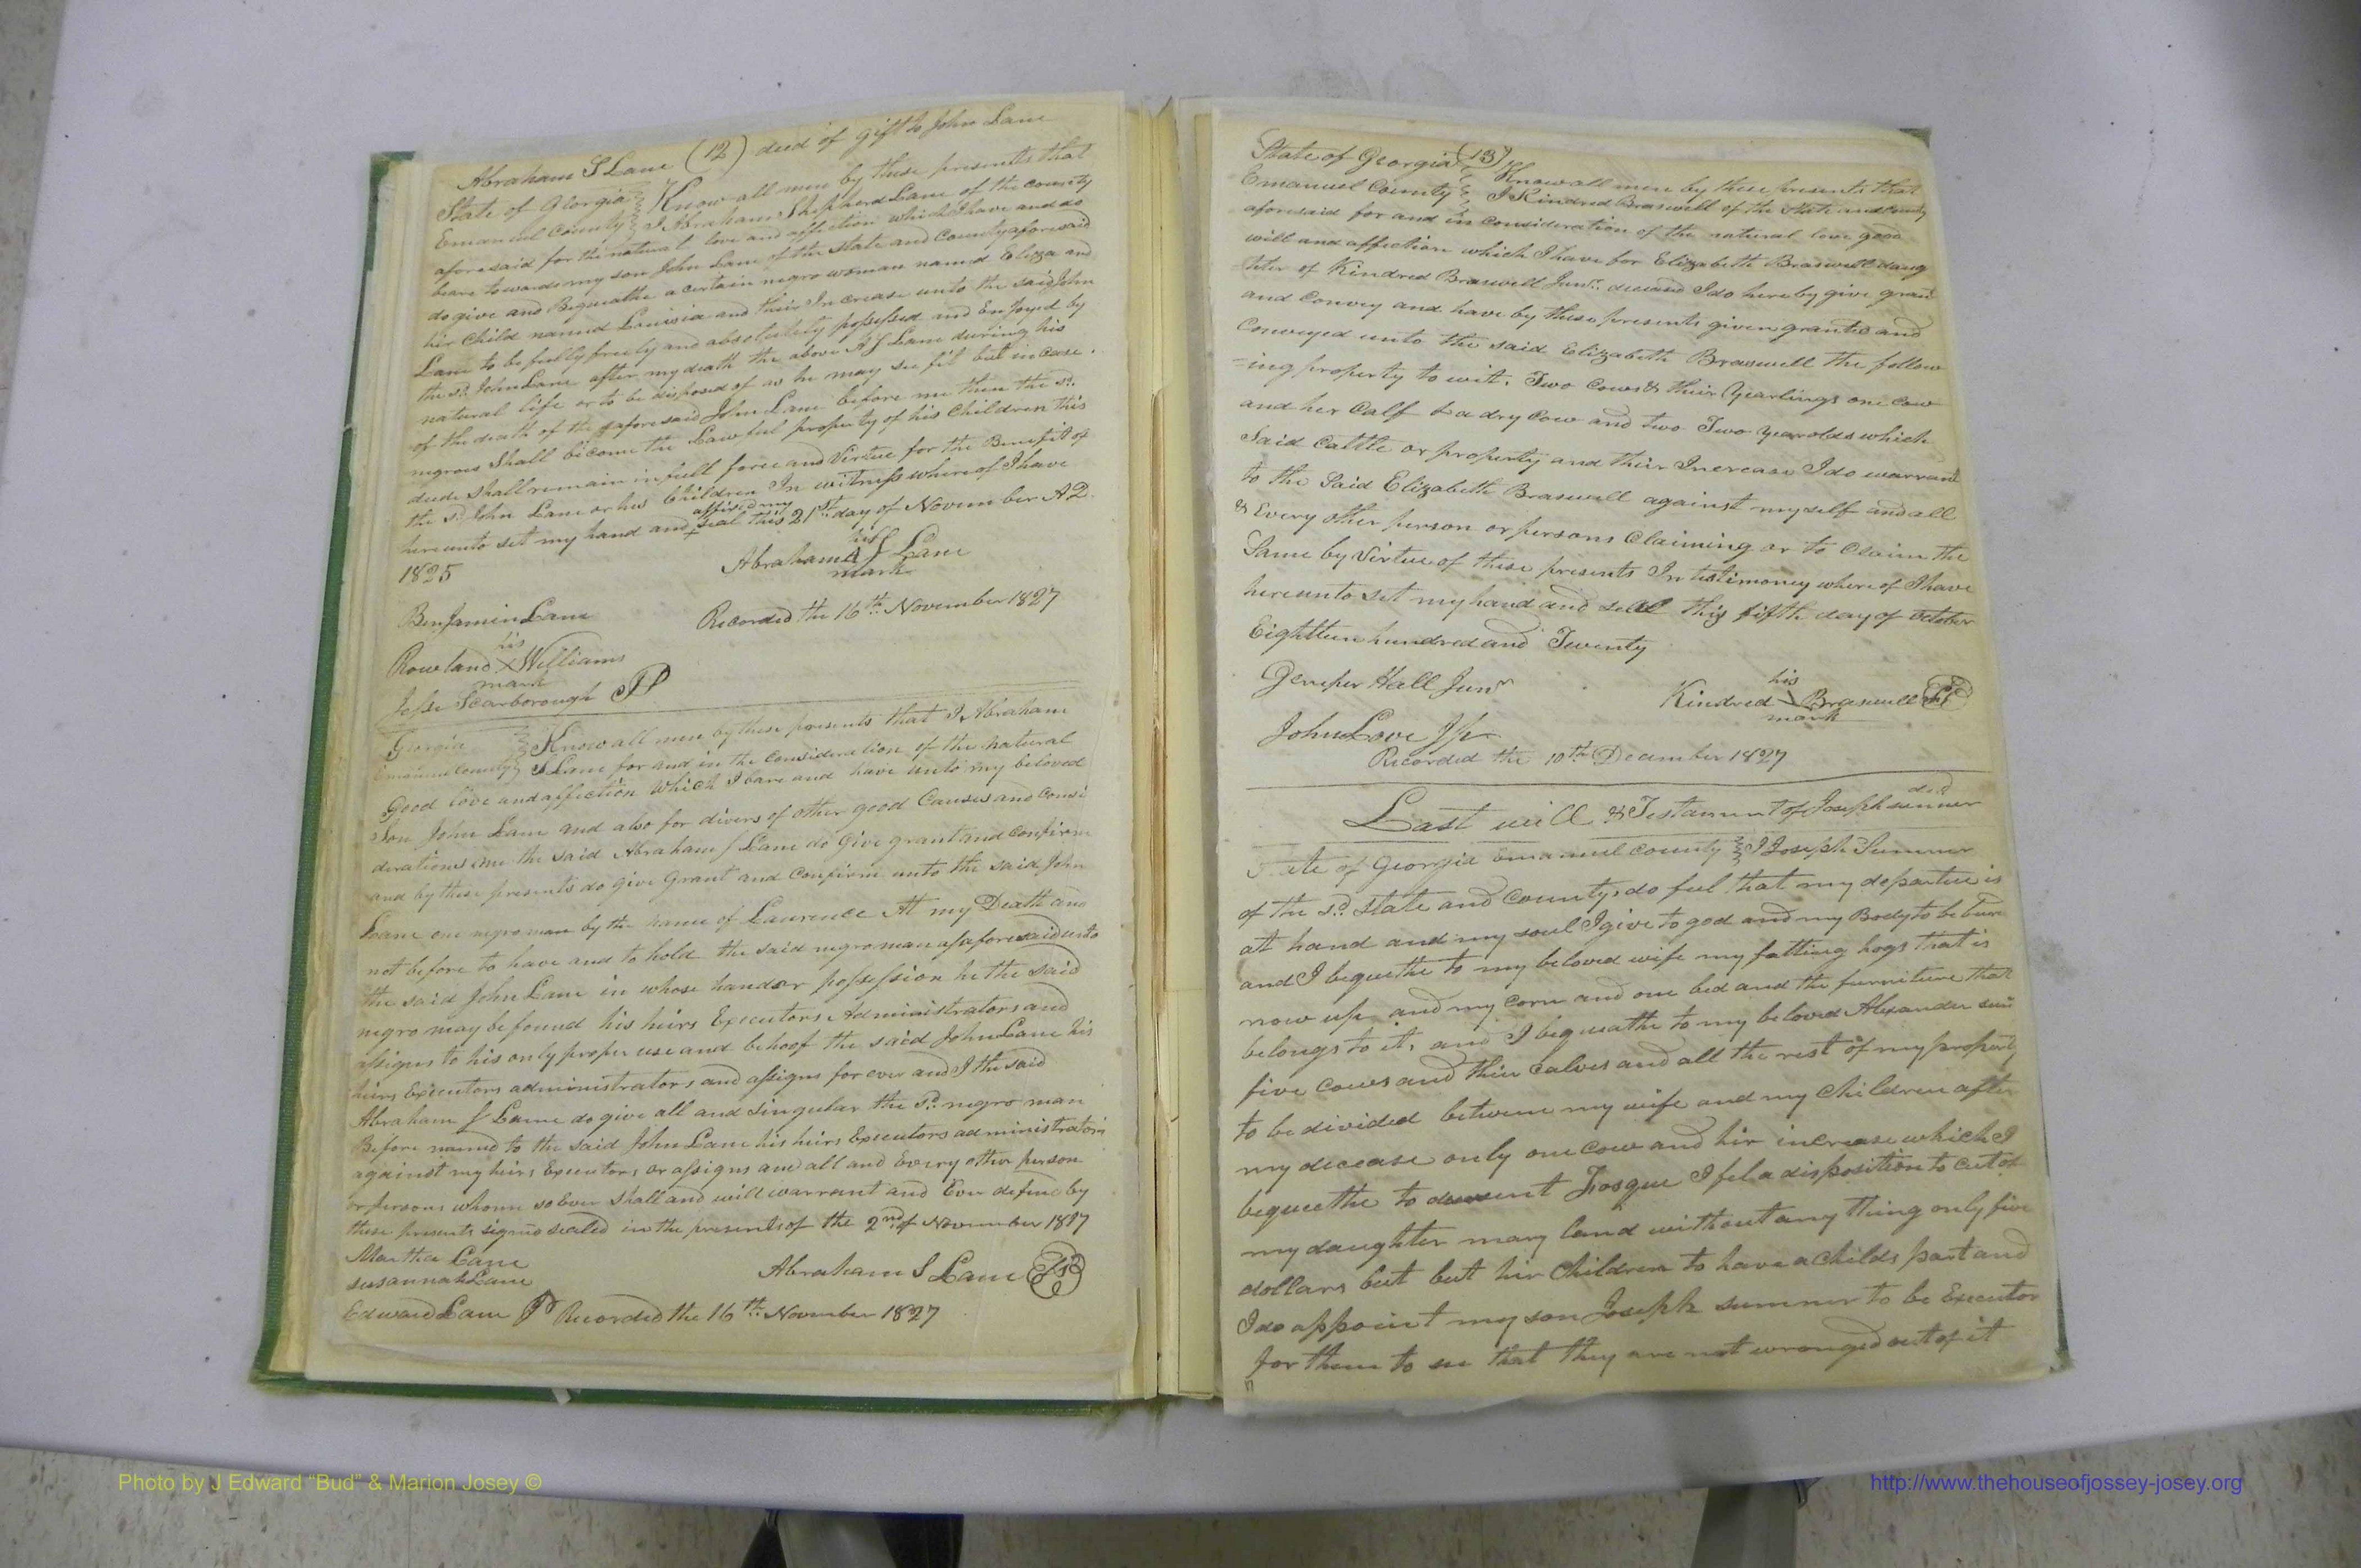 Abraham S Lane (12) deed of gift to John Lane
State of Georgia Know all men by these presents that
Emanuel County I Abraham Shepherd Lane of the county
aforesaid for the natural love and affection which I have and do
beare towards my son John Lane of the state and County aforesaid
do give and Bequeathe a certain negro woman named Eliza and
her Child named and their Increase unto the said John
Lane to be fully freely and absolutely possessed and Enjoyed by
the sd. John Lane after my death the above A S Lane during his
natural life or to be disposed of as he may see fit but in case
of the death of the aforesaid John Lane before me then the sd.
negroes shall become the Lawful property of his Children this
deede shall remain in full force and Virtue for the Benefit of
the sd. John Lane or his Children In witness whereof I have
affixed my
hereunto set my hand and seal this 21st day of November AD.
1825
his
Abraham S Lane
mark
Benjamin Lane
Recorded the 16th November 1827
his
Rowland X Williams
mark
Jesse Scarborough JP
Georgia Know all men by these presents that I Abraham
Emanuel County S Lane for and in the Consideration of the natural
Good love and affection which I bare and have unto my beloved
Son John Lane and also for divers of other good Causes and Consi
derations me the said Abraham S Lane do Give grant and Confirm
and by these presents do give Grant and Confirm unto the said John
Loane one negro man by the name of Laurence At my Death and
not before to have and to hold the said negro man as aforesaid unto
the said John Lane in whose hands or possession he the said
negro may be found his heirs Executors Administrators and
assigns to his only proper use and behoof the said John Lane his
heirs Executors administrators and assigns for ever and I the said
Abraham S Lane do give all and singular the sd. negro man
Before named to the said John Lane his heirs Executors administrators
against my heirs Executors or assigns and all and Every other person
or persons whom so Ever Shall and will warrant and Ever defend by
these presents signed sealed in the presents of the 2nd of November 1817
Martha Lane
Susannah Lane
Abraham S Lane
Edward Lane JP Recorded the 16th November 1827
State of Georgia (13) Know all men by these presents that
Emanuel County I Kindred Braswell of the state and county
aforesaid for and in consideration of the natural love good
will and affection which I have for Elizabeth Braswell daug
hter of Kindred Braswell Junr. deceased I do hereby give grant
and Convey and have by these presents given granted and
Conveyed unto the said Elizabeth Braswell the follow
-ing property to wit. Two Cows & their Yearlings one Cow
and her Calf & a dry Cow and two Two year olds which
Said Cattle or property and their Increase I do warrant
to the Said Elizabeth Braswell against myself and all
& Every other person or persons Claiming or to Claim the
Same by Virtue of these presents In testimoney where of I have
hereunto set my hand and seal this fifth day of October
Eightteen hundred and Twenty
Hall Junr
his
Kindred Braswell LS
mark
John Love
Recorded the 10th December 1827
Last will & Testament of Joseph sumner decd
State of Georgia Emanuel County I Joseph Sumner
of the sd. State and County, do feel that my departue is
at hand and my soul I give to god and my Body to be bure
and I bequethe to my beloved wife my fatting hogs that is
now up and my corn and one bed and the furniture that
belongs to it, and I bequeathe to my beloved Alexander sum
five cows and thin Calves and all the rest of my property
to be divided between my wife and my Children after
my decease only one cow and hir increase which I
bequethe to I fel a disposition to cut of
my daughter mary land without any thing only five
dollars but but hir Children to have a Childs part and
I do appoint my son Joseph sumner to be Executor
for them to see that they are not wronged out of it
Photo by J Edward “Bud” & Marion Josey ©
http://www.thehouseofjossey-josey.org